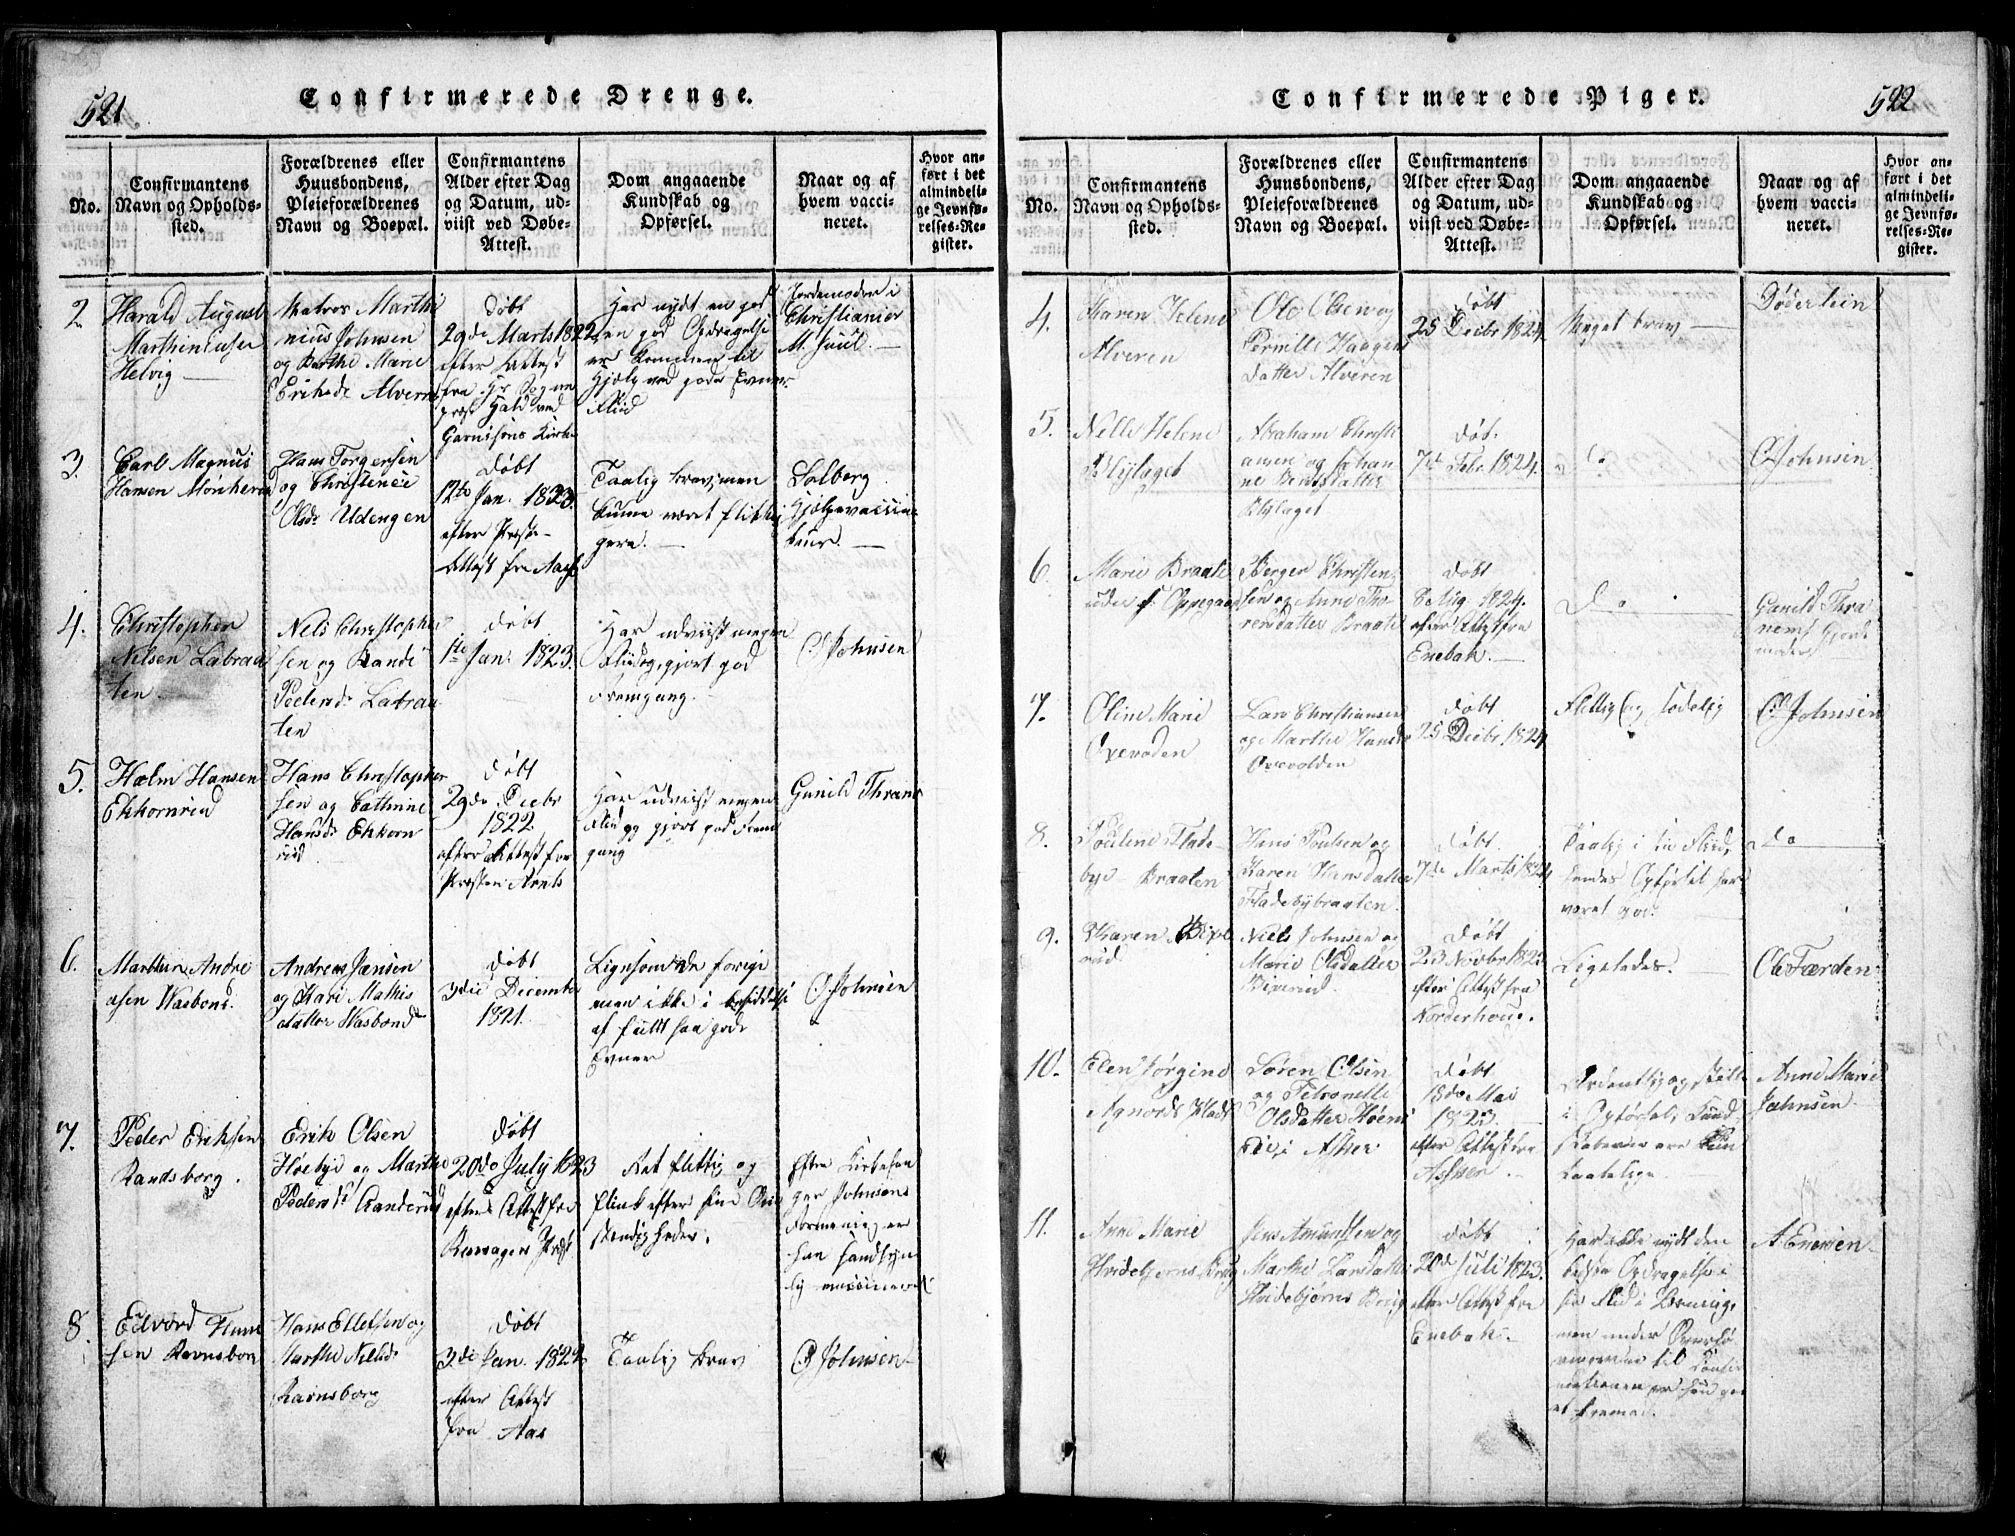 521
Confirmerede Drenge.
No.
Confirmantens
Navn og Opholds-
sted.
Forældrenes eller
Huusbondens,
Pleieforældrenes
Navn og Boepæl.
Confirmantens
Alder efter Dag
og Datum, ud-
viist ved Døbe-
Attest.
Dom angaaende
Kundskab og
Opførsel.
Naar og af
hvem vacci-
neret.
Hvor an-
ført i det
almindeli-
ge Jevnfø-
relses-Re-
gister.
2
Harald August
Marthiniusen
Helvig
Matros Marthi
nius Johnsen
og Berthe Marie
Ericksdr Alvern
Døbt
29de Marts 1822
efter Attest
fra Hr Sogne
præst Hald ved
Garnisons Kirke
Har nydt en god
en god Opdragelse
er kommen til
Hjelp ved gode Evner
Fliid
Jordemoder i
Christiania
M. Juul.
3.
Carl Magnus
Hansen
Hans Torgersen
og Christence
Olsdr Udengen
Døbt
12te Jan. 1823.
efter Præste-
Attest fra Aas
Taalig brav, men
kunne været flitti
gere.
Solberg
Hjelpevaccina
teur.
4.
Christopher
Nilsen Labraa
ten
Nels Christopher
sen og Randi
Pedersdr Labraa
ten
døbt
1ste Jan. 1823.
Har udviist megen
Fliid og gjort god
Fremgang.
O Johnsen
5.
Holm Hansen
Ekkornrud
Hans Christopher
sen og Cathrine
Hansdr Ekkorn
rud
døbt
29de Decbr
1822
efter Attest fra
Præsten Arnts
Har udviist megen
Fliid og gjort god Frem
gang
Gunild Thrane
6.
Marthin Andre
asen Wasbond.
Andreas Jansen
og Kari Mathis
datter Wasbond
døbt
3die December
1821.
Ligesom de forige
men ikke i besiddelse
af fuldt saa gode
Evner
O Johnsen
7.
Peder Eriksen
Randsborg.
Erik Olsen
Høebye og Marthe
Pedersdr Randerud
Døbt
20de July 1823
efter Attest fra
Præst
Ret flittig og
flink efter sine Om
stændigheder.
Efter Kirkesan
ger Johnsens
Formening er
han sandsyn
lig vaccineret
8.
Edvard Han
sen Ravnsborg
Hans Ellefsen og
Marthe Nilsdr
Ravnsborg
Døbt
3die Jan. 1822
efter Attest
fra Aas
Taalig brav
O Johnsen
522
Confirmerede Piger.
No.
Confirmantens
Navn og Opholds-
sted.
Forældrenes eller
Huusbondens,
Pleieforældrenes
Navn og Boepæl.
Confirmantens
Alder efter Dag
og Datum, ud-
viist ved Døbe-
Attest.
Dom angaaende
Kundskab og
Opførsel.
Naar og af
hvem vacci-
neret.
Hvor an-
ført i det
almindeli-
ge Jevnfø-
relses-Re-
gister.
4.
Karen Helene
Alveren
Ole Olsen og
Pernille Haagens
Datter Alveren
døbt
25 Decbr 1824.
Meget brav
Døderlein
5.
Nelle Helene
Blylaget
Abraham Christi
ansen og Johan
ne Bentsdatter
Blylaget
døbt
7de Febr 1824.
Do
O Johnsen
6.
Marie Braate
under Oppegaard
Berger Christen
sen og Anne Tho
rensdatter Braate
døbt
8 Aug 1824.
efter Attest fra
Enebak.
Do
Gunild Thra
nems Jord
moder
7.
Oline Marie
Oxevolden
Lars Christiansen
og Marthe Hansdr
Oxevolden
døbt
25 Decbr 1824.
Flittig og sædelig
O Johnsen
8.
Pouline Flade-
bye-Braaten
Hans Poulsen og
Karen Hansdatter
Fladebybraaten.
døbt.
7de Marts 1824
Taalig i sin Fliid,
hendes Opførsel har
været god.
do
9.
Karen Bixe
rud
Niels Johnsen og
Marie Olsdatter
Bixerud.
døbt
23 Novbr 1823
efter Attest fra
Norderhoug.
Ligeledes.
Ole Færden
10.
Elen Jørgine
Agnords Plads
Søren Olsen
og Petronelle
Olsdatter Høens
Eie, i Asker
døbt
18de Mai
1823.
efter Attest fra
Asker.
Ordentlig og stille
i Opførsel, Kund
skaberne ere kun
taalelige
Anne Marie
Johnsen
11.
Anne Marie
Hvidebjørns Brug
Jens Amundsen og
Marthe Larsdatter
Hvidebjørns Brug
døbt
20de Juli 1823.
efter Attest fra
Enebak.
Har ikke nydt den
bedste Opdragelse i
sin Fliid i Læsning,
men under
til Confir
mationen er hun gaa
et fremad.
A Enersen